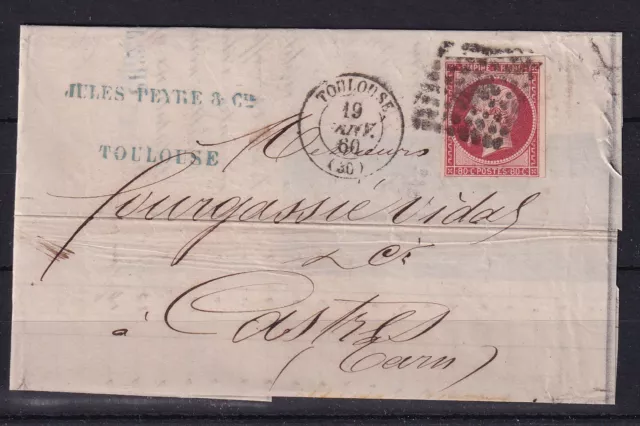 JULES PEYRE & Cie
TOULOUSE
TOULOUSE
19
JANV.
60
(30)
EMPIRE FRANC
80 C POSTES 80 C
Messieurs
Courgassié Vidal
& Cie
à Castres
(Tarn)